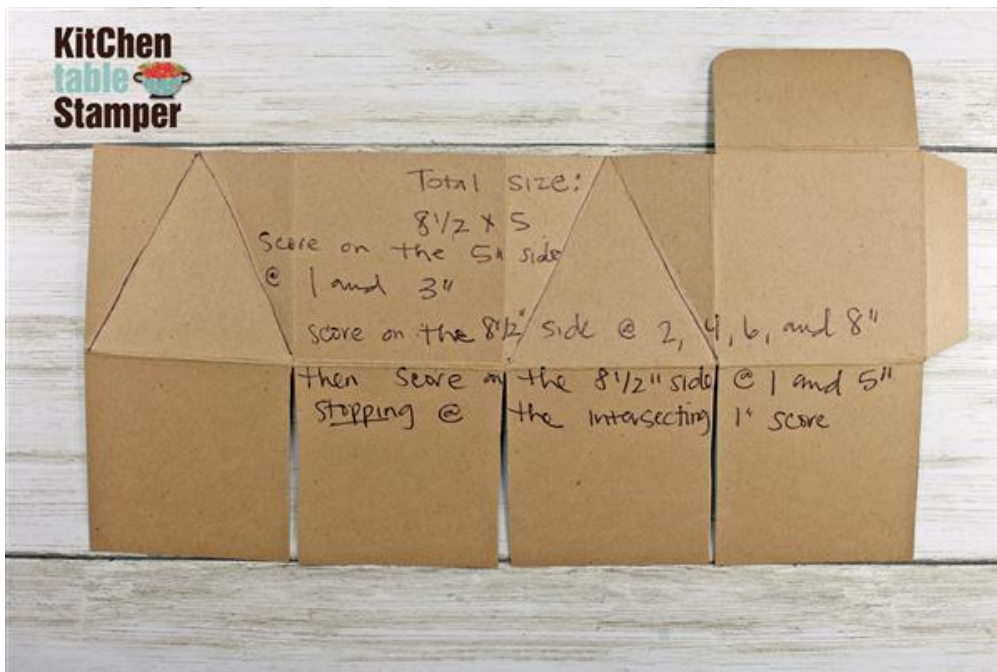 KitChen
table
Stamper
Total size:
8 1/2 x 5
Score on the 5" side
@ 1 and 3"
Score on the 8 1/2" side @ 2, 4, 6, and 8"
then score on the 8 1/2" side @ 1 and 5"
stopping @ the intersecting 1" score